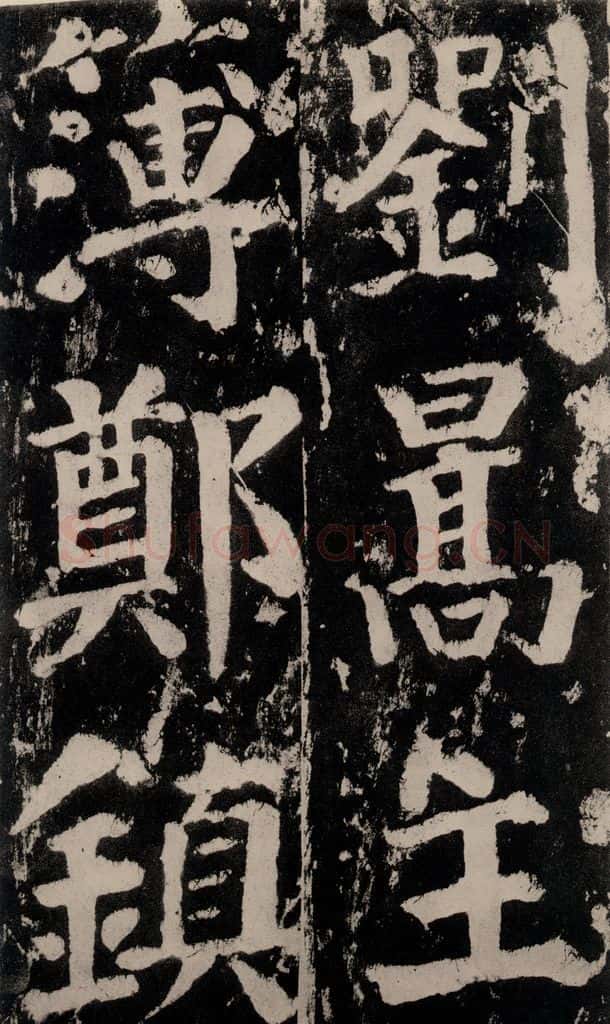 劉暠主
簿鄭鎮
Shufawang.CN